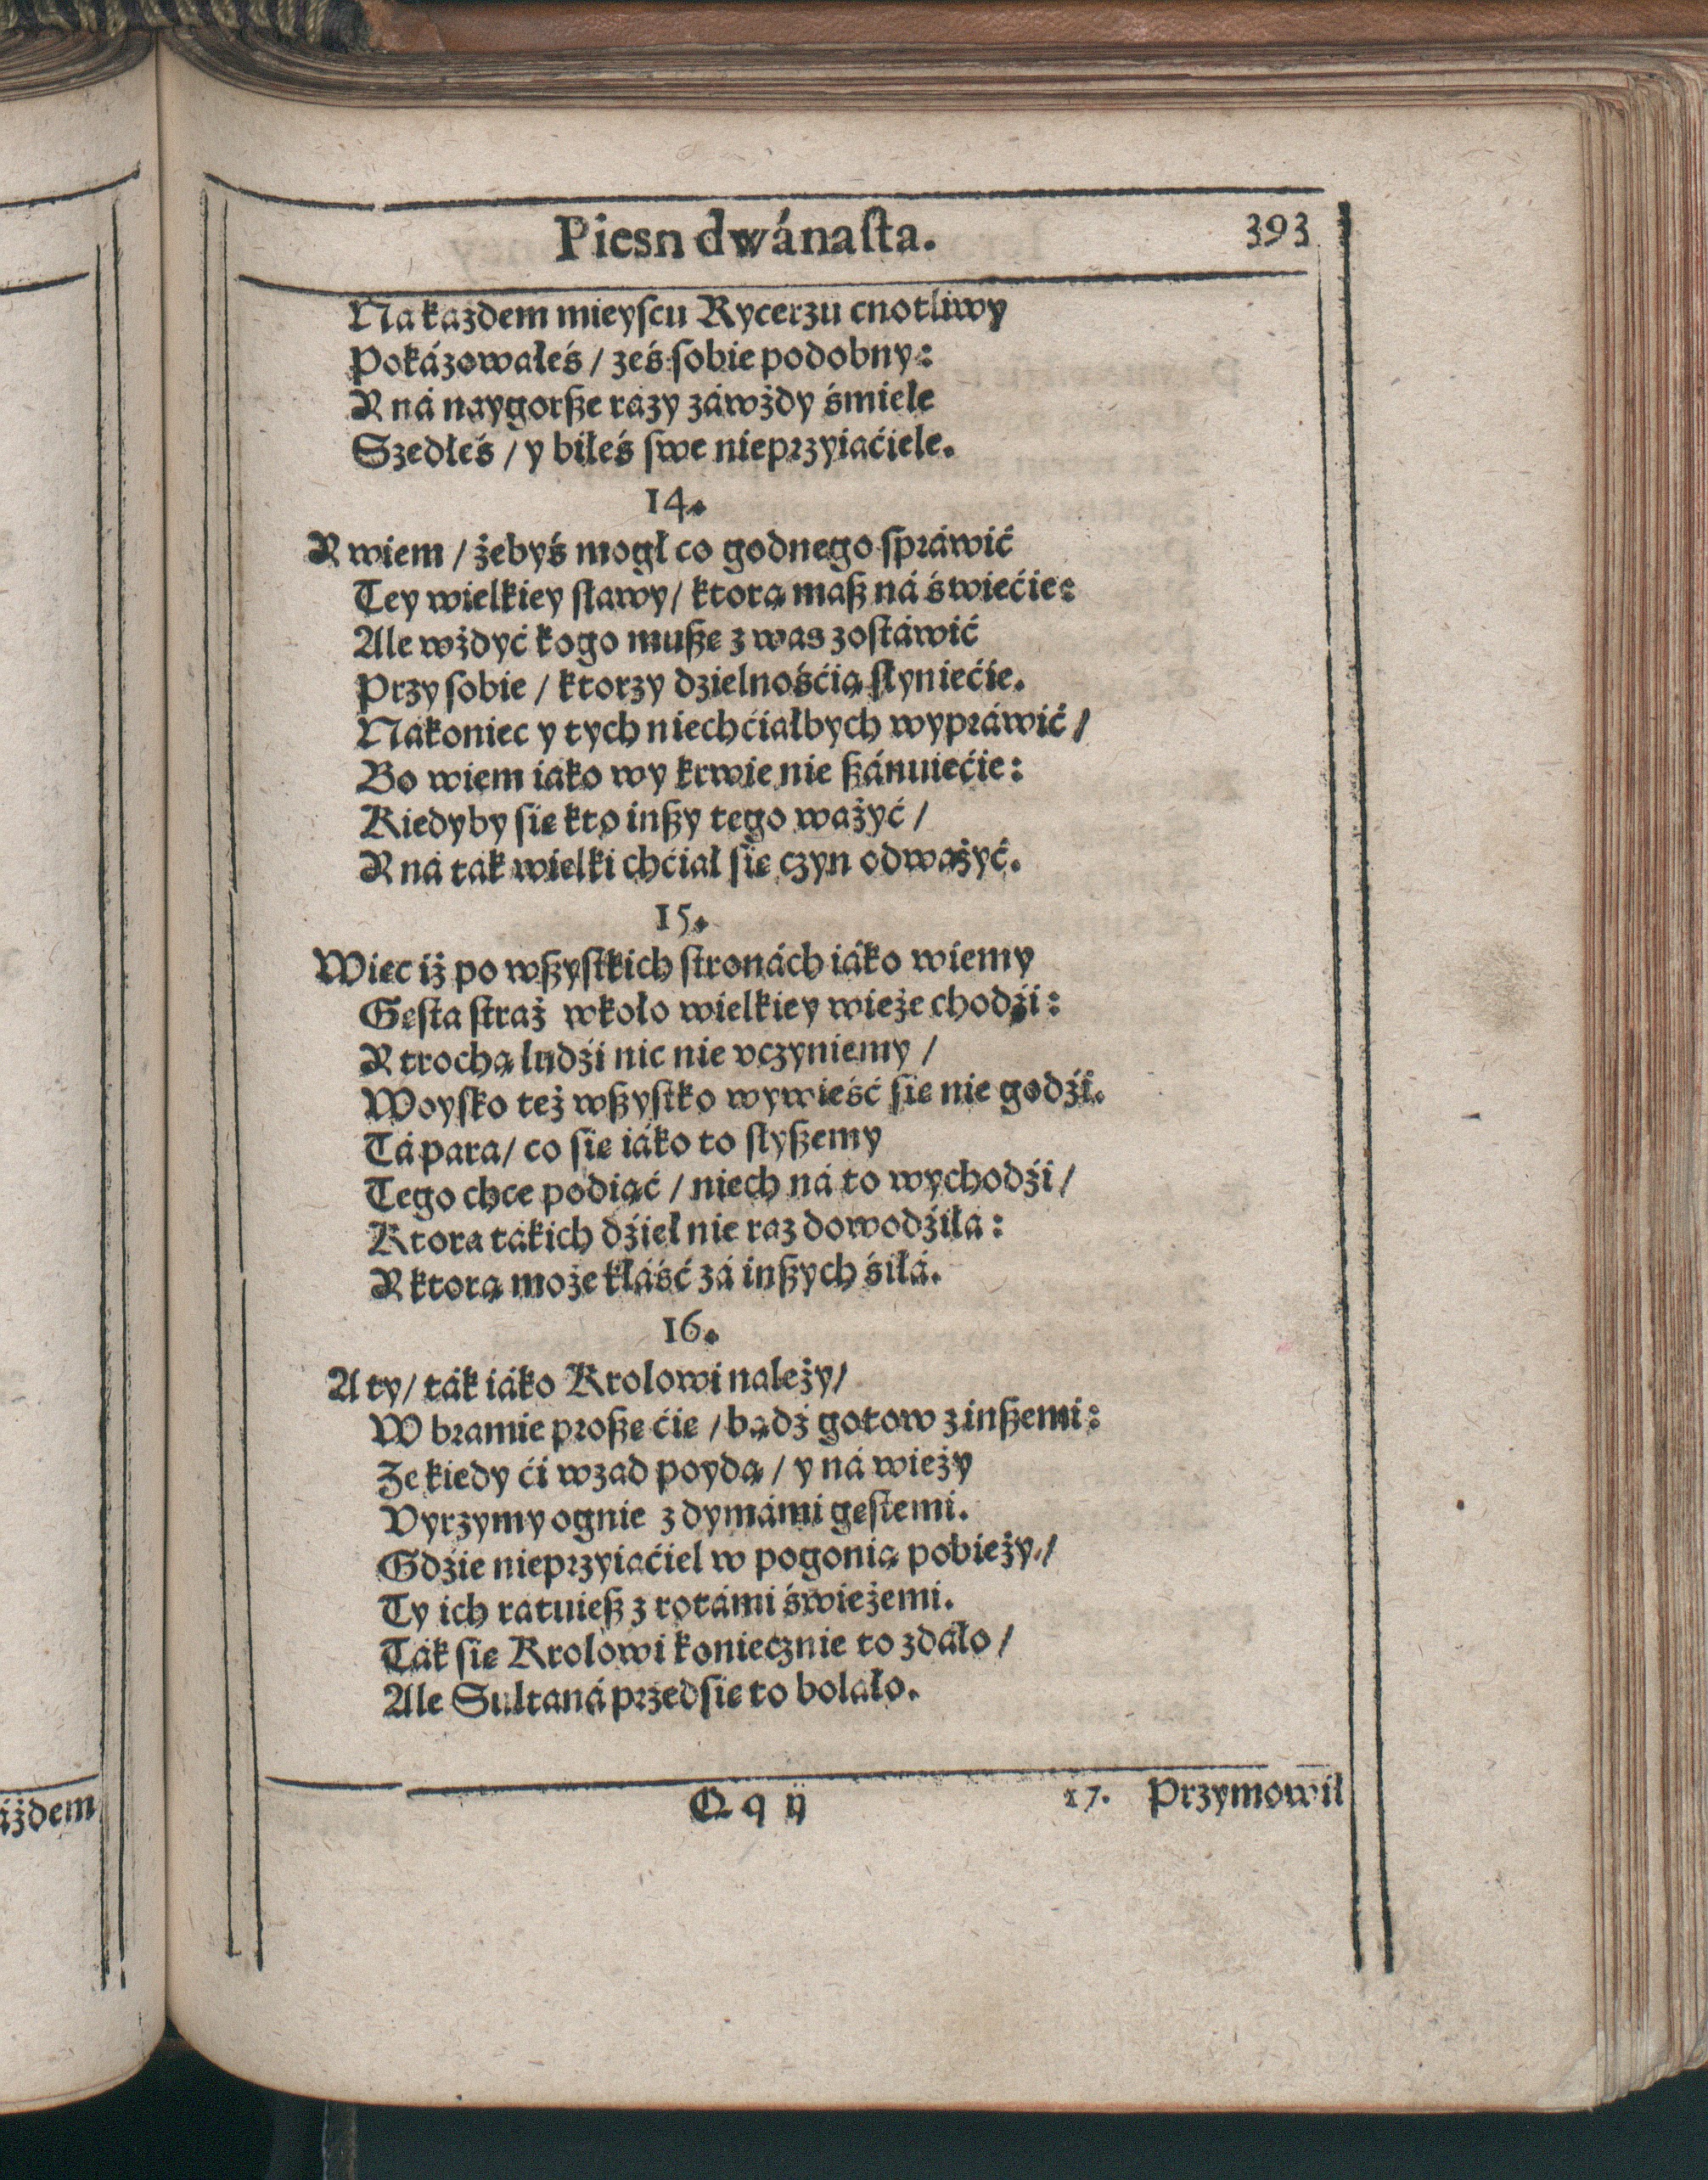 Piesn dwánaſta. 393
Na kazdem mieyſcu Rycerzu cnotliwy
Pokázowałeś / ześ ſobie podobny:
R ná naygorße rázy záwżdy śmiele
Szedłeś / y biłeś ſwe nieprzyiaćiele.
14.
R wiem / żebyś mogł co godnego ſpráwić
Tey wielkiey ſławy / ktorą maß ná świećie:
Ale wżdyć kogo mußę z was zoſtáwić
Przy ſobie / ktorzy dzielnośćią ſłyniećie.
Nákoniec y tych niechćiałbych wypráwić /
Bo wiem iáko wy krwie nie ßánuiećie:
Kiedyby ſię kto inßy tego ważyć /
R ná ták wielki chćiał ſię czyn odważyć.
15.
Więc iż po wßyſtkich ſtronách iáko wiemy
Gęſta ſtraż wkoło wielkiey wieże chodźi:
R trochą ludźi nic nie vczyniemy /
Woyſko też wßyſtko wywieść ſię nie godźi.
Tá para / co ſię iáko to ſłyßemy
Tego chce podiąć / niech ná to wychodźi /
Ktora tákich dźieł nie raz dowodźiłá:
R ktorą może kłáść zá inßych śiłá.
16.
A ty / ták iáko Krolowi należy /
W bramie proßę ćię / bądź gotow z inßemi:
Ze kiedy ći wzad poydą / y ná wieży
Vyrzymy ognie z dymámi gęſtemi.
Gdźie nieprzyiaćiel w pogonią pobieży /
Ty ich ratuieß z rotámi świeżemi.
Ták ſię Krolowi koniecznie to zdáło /
Ale Sultaná przedſię to bolało.
Q q ij 17. Przymowił